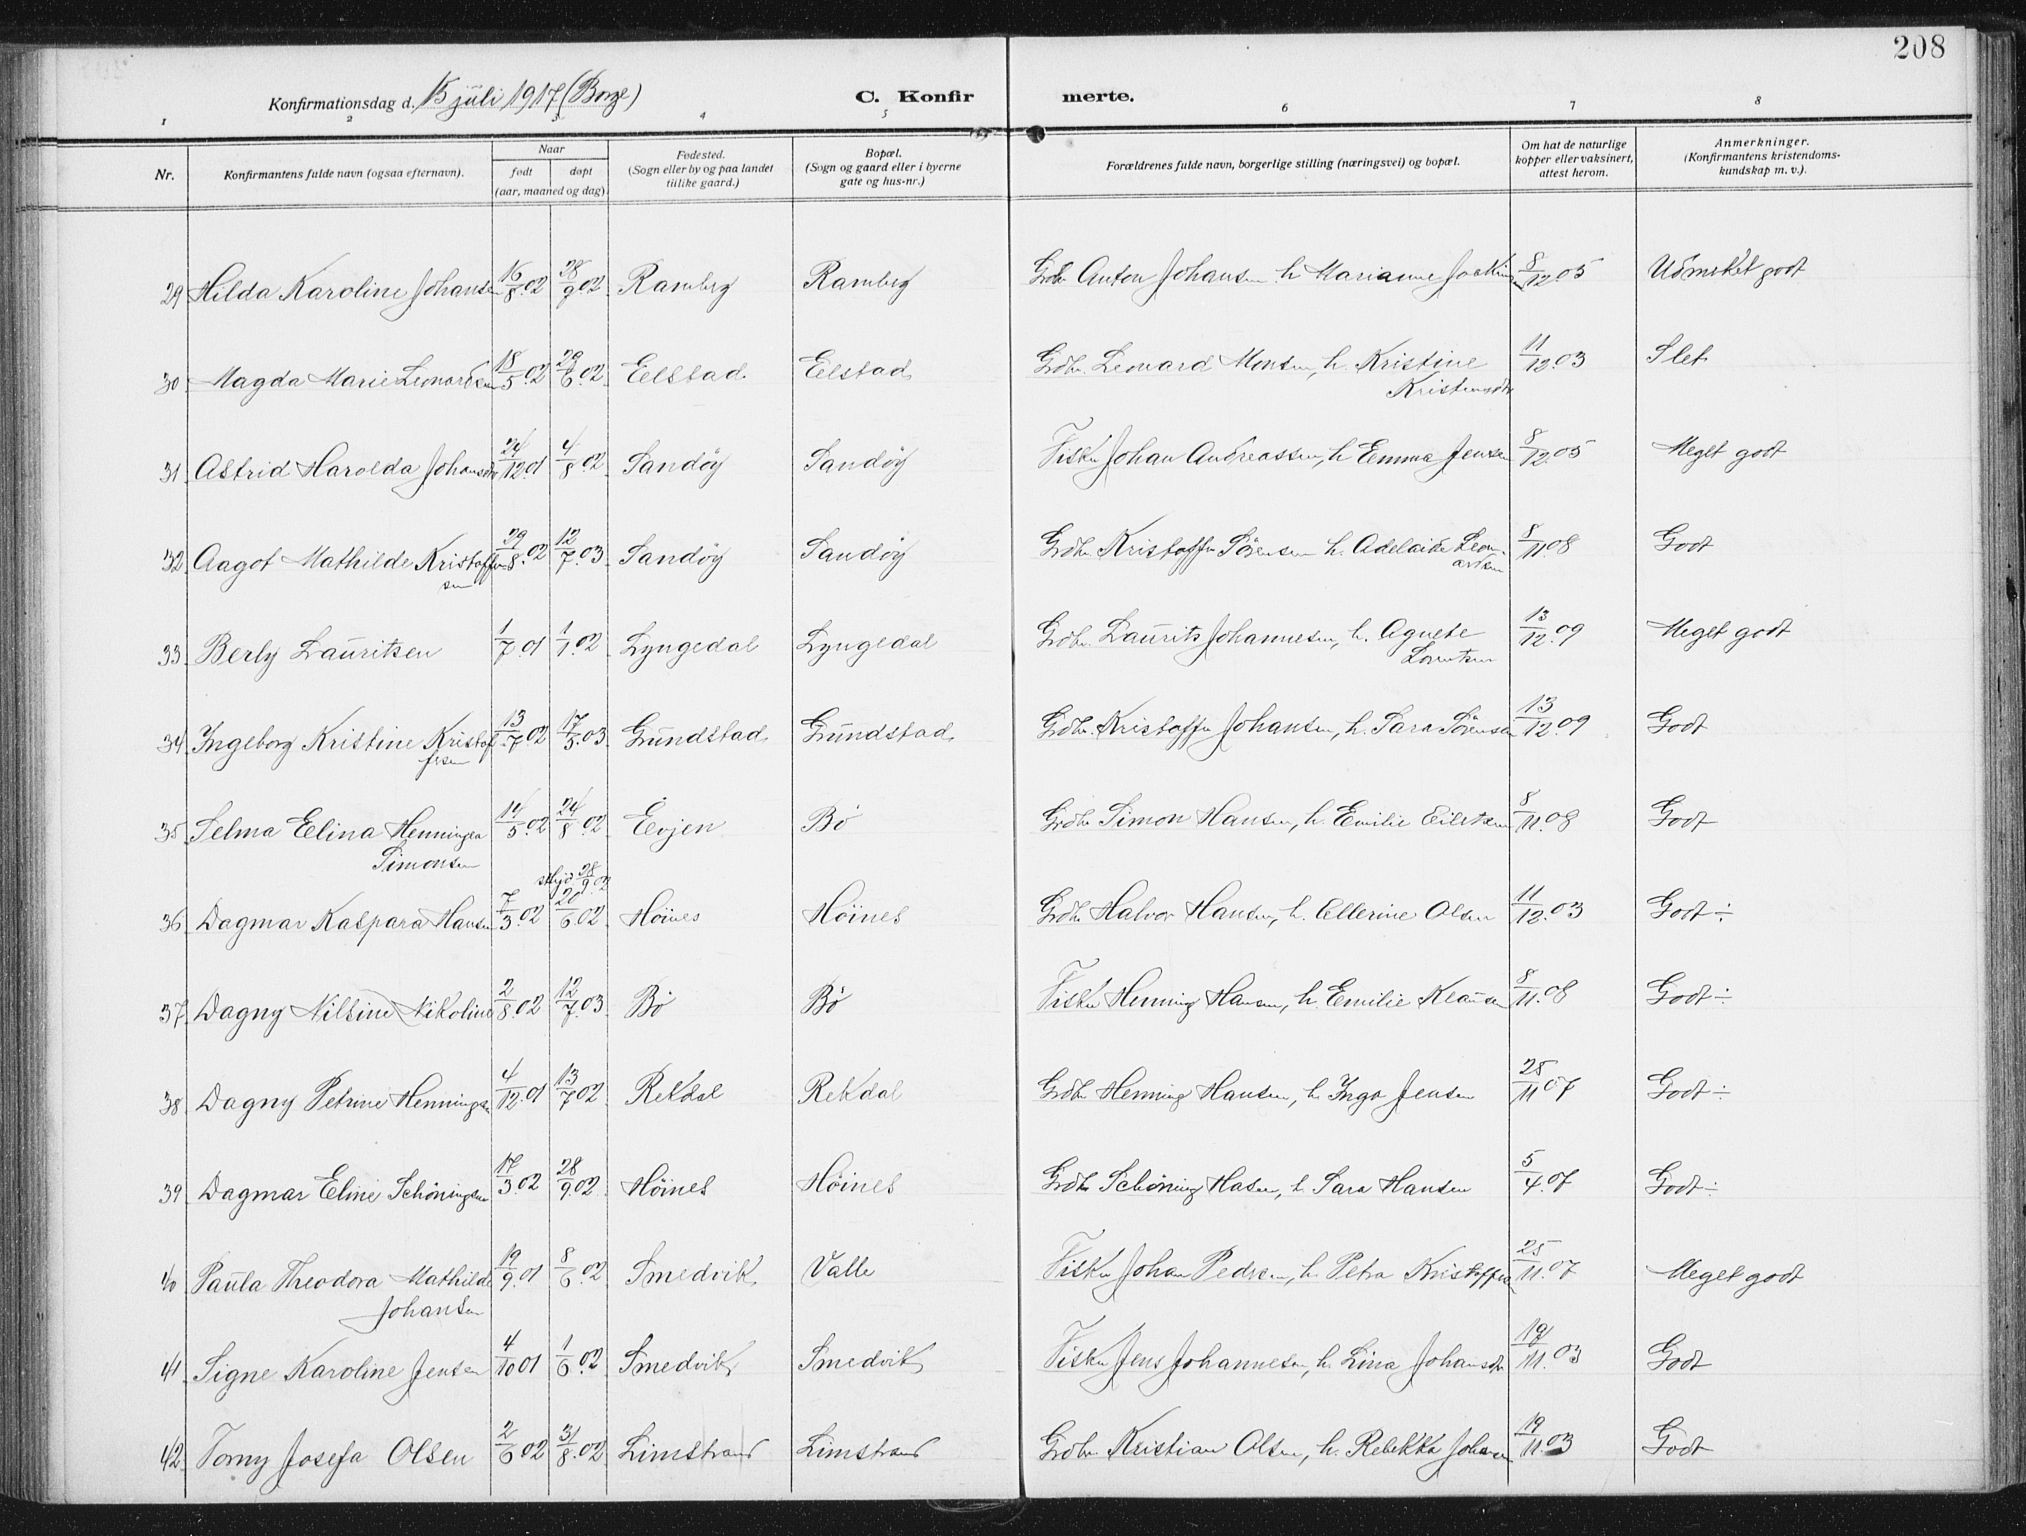 208
Konfirmationsdag d. 15 juli 1917 (Borge)
C. Konfir merte.
1 2 3 4 5 6 7 8
Nr. Konfirmantens fulde navn (ogsaa efternavn). Naar født døpt (aar, maaned og dag). Fødested. (Sogn eller by og paa landet tillike gaard.) Bopæl. (Sogn og gaard eller i byerne gate og hus-nr.) Forældrenes fulde navn, borgerlige stilling (næringsvei) og bopæl. Om hat de naturlige kopper eller vaksinert, attest herom. Anmerkninger. (Konfirmantens kristendoms-kundskap m. v.).
29 Hilda Karoline Johansen 16/8 02 28/9 02 Ramberg Ramberg Grdbr. Anton Johansen h. Marianne 8/12 05 Udmerket godt
30 Magda Marie Leonardsen 18/5 02 29/6 02 Eelstad Eelstad Grdbr. Leonard Monsen, h. Kristine Kristensdtr 11/12 03 Slet
31 Astrid Harolda Johansdtr 24/12 01 4/8 02 Sandöy Sandöy Fisker Johan Andreassen, h. Emma Jensen 8/12 05 Meget godt
32 Aagot Mathilde Kristoffersen 29/8 02 12/7 03 Sandöy Sandöy Grdbr. Kristoffer Sörensen h. Adelaide Leonardsen 8/11 08 Godt
33 Berly Lauritsen 1/7 01 1/1 02 Lyngedal Lyngedal Grdbr. Laurits Johannesen, h. Agnete Lorentsen 13/12 09 Meget godt
34 Ingeborg Kristine Kristoffersen 13/7 02 17/5 03 Grundstad Grundstad Grdbr. Kristoffer Johansen, h. Sara Sörensen 13/12 09 Godt
35 Selma Elina Henningea Simonsen 14/5 02 24/8 02 Evjen Bö Grdbr. Simon Hansen, h. Emilie Eilertsen 8/11 08 Godt
36 Dagmar Kaspara Hansen 7/3 02 20/6 02 28/9 02 Höines Höines Grdbr. Halvor Hansen, h. Ellerine Olsen 11/12 03 Godt ÷
37 Dagny Nilsine Nikoline 2/8 02 12/7 03 Bö Bö Fisker Henning Hansen, h. Emilie Klausen 8/11 08 Godt ÷
38 Dagny Petrine Henningsen 4/12 01 13/7 02 Rekdal Rekdal Grdbr. Henning Hansen, h. Inga Jensen 25/11 07 Godt ÷
39 Dagmar Eline Schöningsen 17/3 02 28/9 02 Höines Höines Grdbr. Schöning Hasen, h. Sara Hansen 5/4 07 Godt ÷
40 Paula Theodora Mathilde Johansen 19/9 01 8/6 02 Smedvik Valle Fisker Johan Pedersen, h. Petra Kristoffersen 25/11 07 Meget godt
41 Signe Karoline Jensen 4/10 01 1/6 02 Smedvik Smedvik Fisker Jens Johannesen, h. Lina Johansdtr 19/11 03 Godt
42 Tomy Josefa Olsen 2/6 02 31/8 02 Limstrand Limstrand Grdbr. Kristian Olsen, h. Rebekka Johansen 19/11 03 Godt